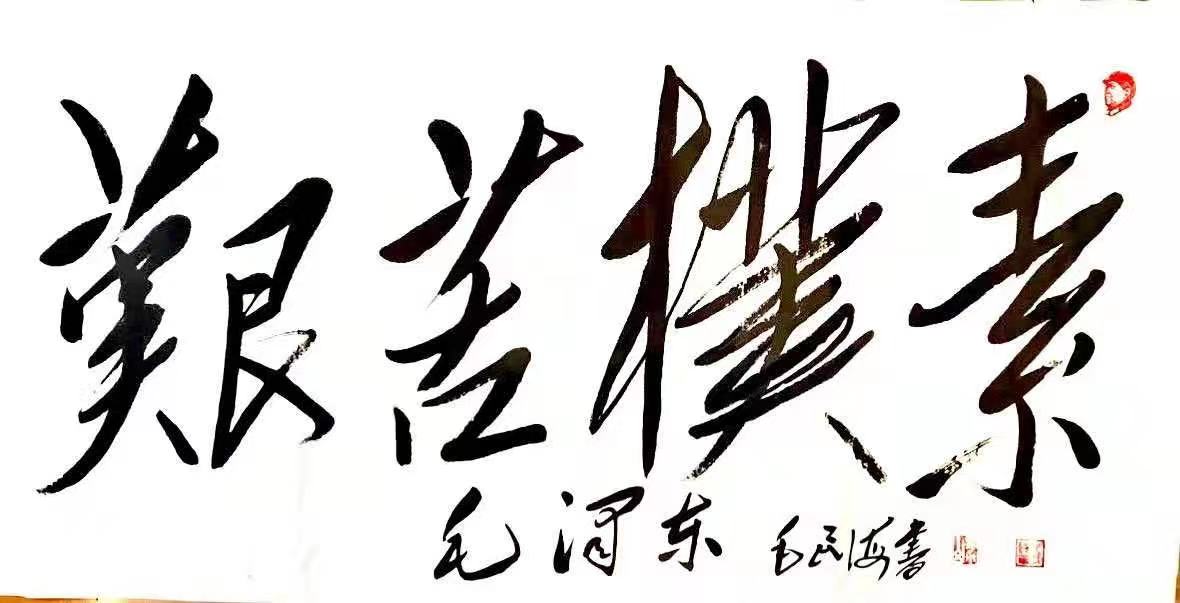 艱苦樸素
毛泽东 毛民海書